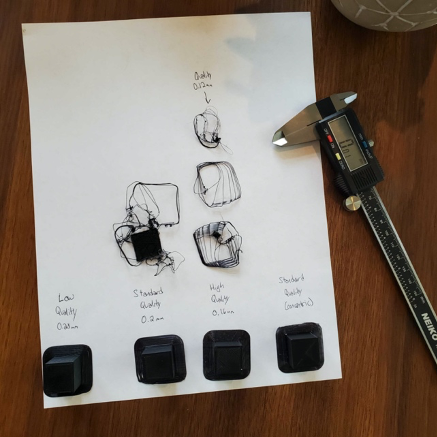 Quality
0.12mm
Low
Quality
Standard
Quality
0.2mm
High
Quality
0.16mm
Standard
Quality
NEIKO